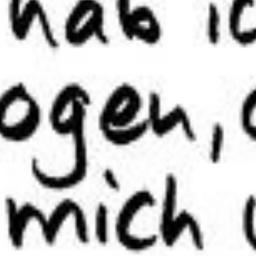 hab ic
ogen,
mich